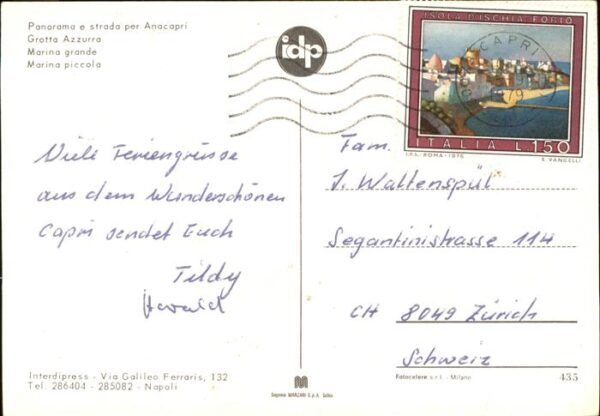 Panorama e strada per Anacapri
Grotta Azzurra
Marina grande
Marina piccola
idp
ISOLA D'ISCHIA-FORIO
CAPRI
ITALIA L.150
I.P.S.-ROMA-1976 E. VANGELLI
Viele Feriengrüsse
aus dem Wunderschönen
Capri sendet Euch
Tildy
Harald
Fam.
J. Waltenspül
Segantinistrasse 114
CH 8049 Zürich
Schweiz
Interdipress - Via Galileo Ferraris, 132
Tel. 286404 - 285082 - Napoli
Fotocelere s.r.l. - Milano
435